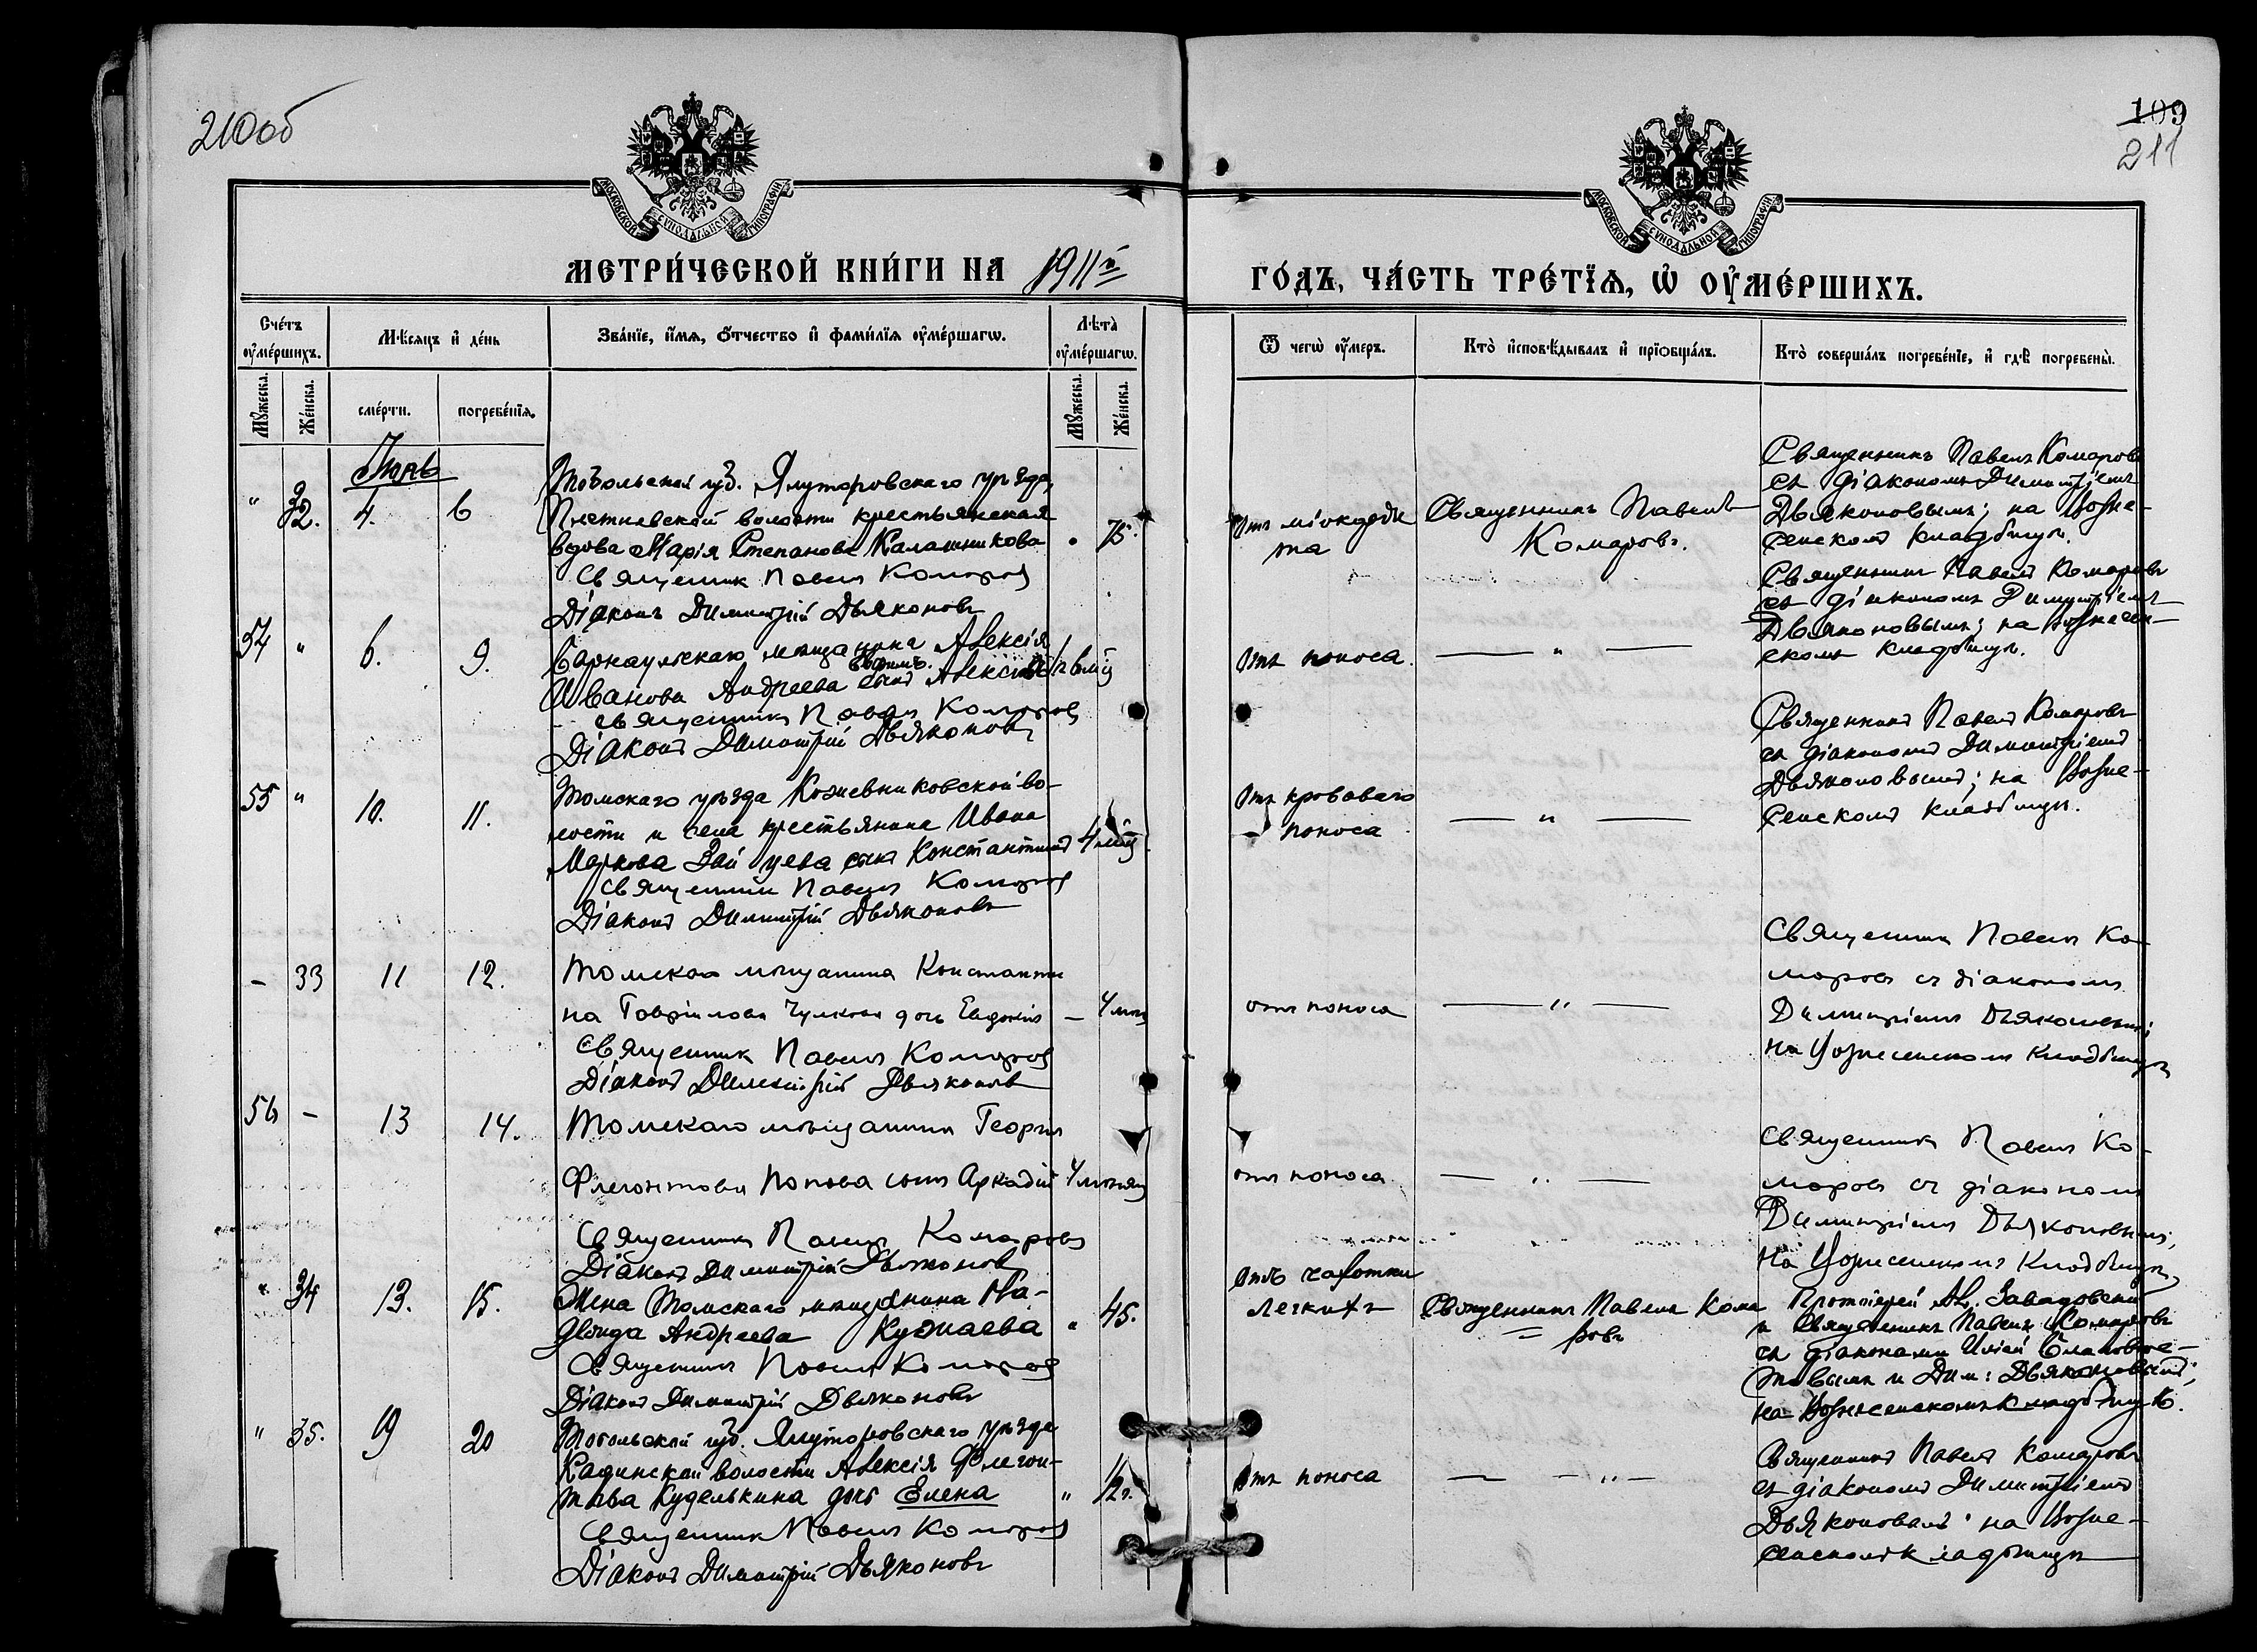 210об
109
211
МОСКОВСКОЙ СУНОДАЛЬНОЙ ТИПОГРАФІИ
МОСКОВСКОЙ СУНОДАЛЬНОЙ ТИПОГРАФІИ
МЕТРИ́ЧЕСКОЙ КНИ́ГИ НА 1911й
ГО́ДЪ, ЧА́СТЬ ТРЕ́ТЇѦ, Ѡ҆ ОУ҆МЕ́РШИХЪ.
Сче́тъ оу҆ме́ршихъ.
Мѣ́сяцъ и҆ де́нь
Зва́нїе, и҆́мѧ, ѻ҆́тчество и҆ фами́лїѧ оу҆ме́ршагѡ.
Лѣ́та оу҆ме́ршагѡ.
Ѿ чегѡ̀ оу҆́меръ.
Кто̀ и҆сповѣ́дывалъ и҆ прїѻбща́лъ.
Кто̀ соверша́лъ погребе́нїе, и҆ гдѣ̀ погребены̀.
Мꙋ́жеска.
Же́нска.
сме́рти.
погребе́нїѧ.
Мꙋ́жеска.
Же́нска.
Іюнь
" 32. 4. 6
Тобольской губ. Ялуторовскаго уѣзда,
волости крестьянская
вдова Марія Степанова Калашникова
" 75.
Священник Павел Комаров
Діаконъ Димитрій Дьяконовъ
Отъ міокарди
та
Священникъ Павелъ
Комаровъ.
Священникъ Павелъ Комаровъ
съ діакономъ Димитріемъ
Дьяконовымъ; на Возне-
сенскомъ кладбищѣ.
54 " 6. 9.
Барнаульскаго мѣщанина Алексія
Иванова Андреева сынъ Алексій
Священникъ Павелъ Комаровъ
Діаконъ Димитрій Дьяконовъ
Отъ поноса. — " —
Священникъ Павелъ Комаровъ
съ діакономъ Димитріемъ
Дьяконовымъ; на Вознесен-
скомъ кладбищѣ.
55 " 10. 11.
Томскаго уѣзда Кожевниковской во-
лости и села крестьянина Ивана
Маркова Зайцева сынъ Константинъ 4 мѣс
Священник Павелъ Комаров
Діаконъ Димитрій Дьяконовъ
Отъ кроваваго
поноса
— " —
Священникъ Павелъ Комаровъ
съ діакономъ Димитріемъ
Дьяконовымъ; на Возне-
сенскомъ кладбищѣ.
– 33 11 12.
Томскаго мѣщанина Константи
на Гавріилова Чулкова дочь Евдокія – 4 мѣс
Священник Павелъ Комаров
Діаконъ Димитрій Дьяконовъ
отъ поноса — " —
Священник Павелъ Ко-
маровъ съ діакономъ
Димитріемъ Дьяконовымъ;
на Вознесенскомъ кладбищѣ
56 – 13 14.
Томскаго мѣщанина Георгія
Флегонтова Попова сынъ Аркадій
Священникъ Павелъ Комаровъ
Діаконъ Димитрій Дьяконовъ
отъ поноса — " —
Священникъ Павелъ Ко-
маровъ съ діакономъ
Димитріемъ Дьяконовымъ;
на Вознесенскомъ кладбищѣ
" 34 13. 15.
Жена Томскаго мѣщанина
Андреева " 45.
Священникъ Павелъ Комаров
Діаконъ Димитрій Дьяконовъ
Отъ чахотки
легкихъ
Священникъ Павелъ Кома
ровъ
Протоіерей Ал. Завадовскій
и Священникъ Павелъ Комаровъ
съ діаконами Иліей
и Дим: Дьяконовымъ;
на Вознесенскомъ кладбищѣ.
" 35. 19 20
Тобольской губ. Ялуторовскаго уѣзда
волости Алексія Флегон-
това Куделькина дочь Елена
" 1/2 г.
Священник Павелъ Комаров
Діаконъ Димитрій Дьяконовъ
Отъ поноса — " —
Священникъ Павелъ Комаровъ
съ діакономъ Димитріемъ
Дьяконовымъ; на Возне-
сенскомъ кладбищѣ